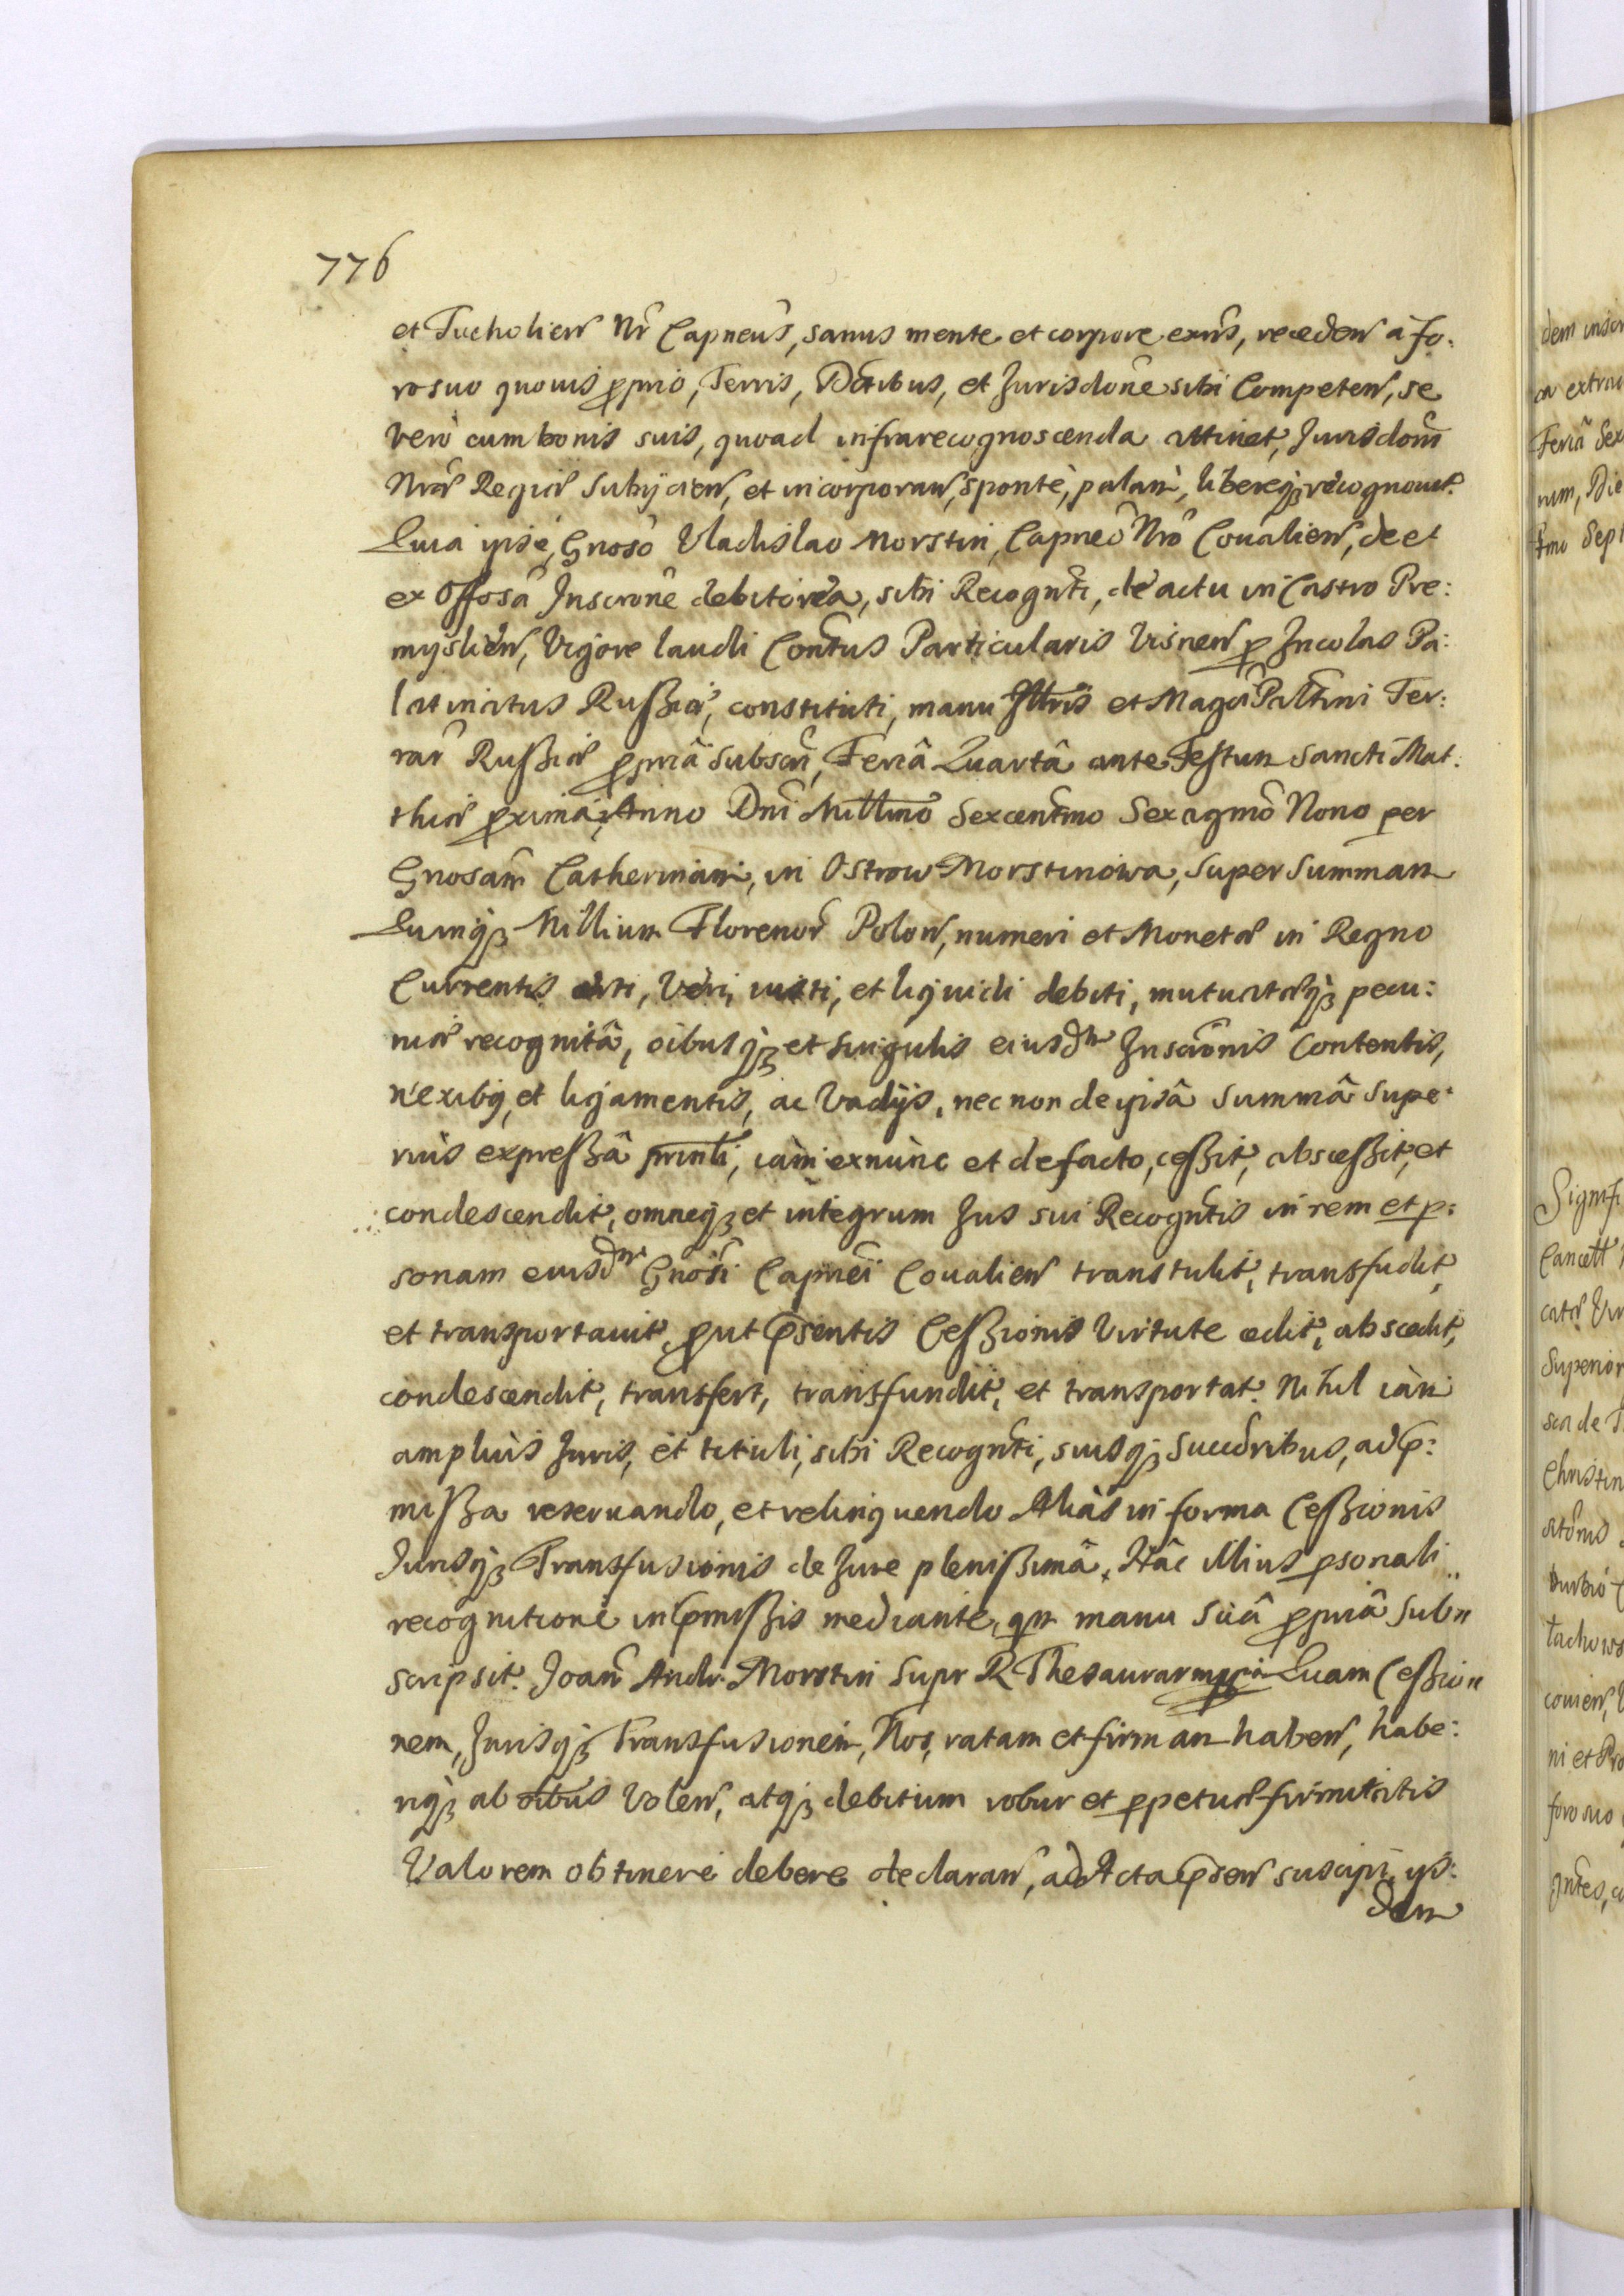 776
et Tucholien Nr Capneus, sanus mente et corpore exns, receden à fo:
ro suo quouis ꝓprio, Terris, Dctibus, et Jurisdone sibi Competen, se
vero cum bonis suis, quoad infrarecognoscenda attinet, Jurisdoni
Nræ Regiæ Subijcien, et incorporan, sponte, palam, libereqꝫ recognouit.
Quia ipse, Gnoso Vladislao Morstin, Capneo Nro Coualien, de et
ex Offosa Inscrone debitoria, sibi Recognti, de actu in Castro Pre:
myslien, Vigore laudi Contus Particularis Visnen ꝑ Incolas Pa:
latinatus Rußiæ, constituti, manu Illtris et Magci Palatini Ter:
rar Rußiæ ꝓpriâ Subscri, Feriâ Quartâ ante Festum Sancti Mat:
thiæ ꝓximâ, Anno Dni Millmo Sexcentmo Sexagmo Nono per
Gnosam Catherinam, in Ostrow Morstinowa, Super Summam
Quinqꝫ Millium Florenor Polon, numeri et Monetæ in Regno
Currentis certi, Veri, iusti, et liquidi debiti, mutuatæqꝫ pecu:
niæ recognitâ, oibusqꝫ et singulis eiusdm Inscronis Contentis,
nexibq, et ligamentis, ac Vadijs, nec non de ipsâ Summâ Supe:
rius expreßâ prnti, iam exnunc et defacto, ceßit, absceßit, et
condescendit, omneqꝫ et integrum Jus sui Recogntis in rem et p:
sonam eiusdm Gnosi Capnei Coualien transtulit, transfudit,
et transportauit, ꝓut pꝛsentis Ceßionis Virtute cedit, abscedit,
condescendit, transfert, transfundit, et transportat. Nihil iam
amplius Juris, et tituli, sibi Recognti, suisqꝫ Succdribus, ad p:
mißa reseruando, et relinquendo Aliàs in forma Ceßionis
Jurisqꝫ Transfusionis de Jure plenißimâ. Hâc illius ꝑsonali
recognitione in pmißis mediante, qm manu Suâ ꝓpriâ Sub"
scripsit. Joan Andr. Morstin Supr R Thesaurar mpria Quam Ceßio"
nem, Jurisqꝫ Transfusionem, Nos, ratam et firmam haben, habe:
riqꝫ ab oibus Volen, atqꝫ debitum robur et ꝑpetuæ firmitatis
Valorem obtinere debere declaran, ad Acta psen suscipi, ijs:
dem